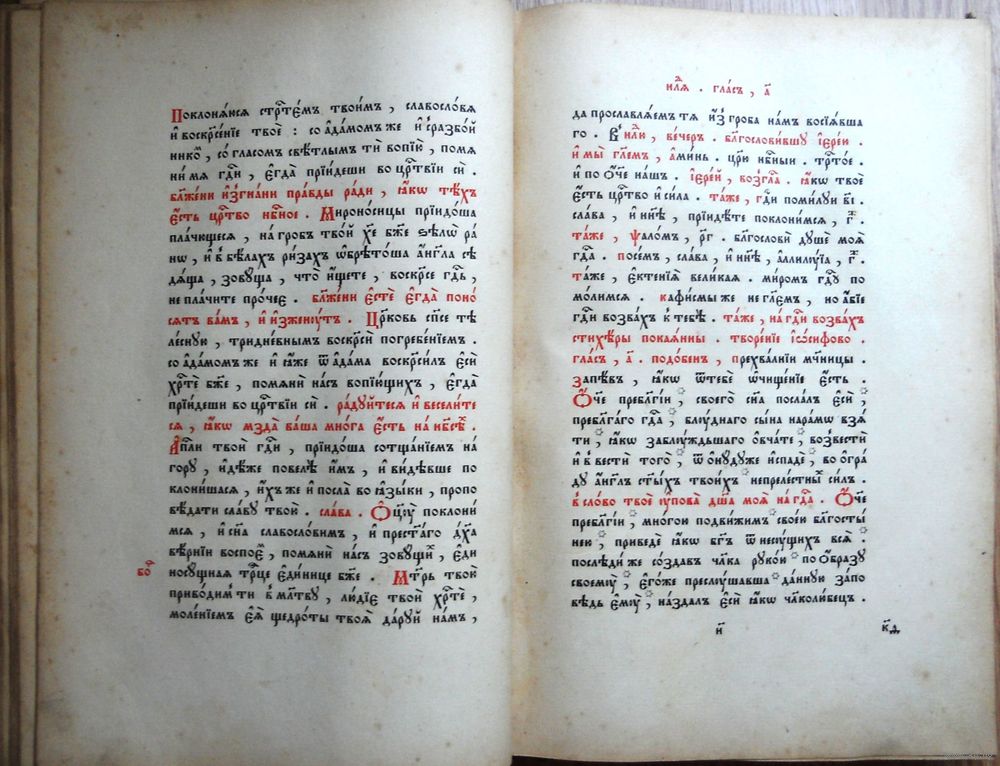 Поклонѧ́ѧсѧ стрⷭ҇те́мъ твои̑мъ, славосло́вѧ
и҆ воскрⷭ҇е́нїе твоѐ : со а҆да́момъ же и҆ с̾разбо́й
нико́мъ, со гла́сомъ свѣ́тлымъ ти вопїю̀, помѧ
нѝ мѧ гдⷭ҇и, є҆гда̀ прїи́деши во црⷭ҇твїи си̑.
Бл҃же́ни и҆згна́ни пра́вды ра́ди, ꙗ҆́кѡ тѣ́хъ
є҆́сть црⷭ҇тво нбⷭ҇ное. Мѷроно́сицы прїидо́ша
пла́чющесѧ, на́ гробъ тво́й хрⷭ҇тѐ бж҃е ѕѣлѡ̀ ра́
нѡ, и҆ в̾ бѣ́лахъ ри́захъ ѡ҆брѣто́ша а҆́нг҃ла сѣ
дѧ́ща, зову́ща, что̀ и҆́щете, воскр҃се гдⷭ҇ь,
не пла́чите про́чее. Бл҃же́ни є҆стѐ є҆гда̀ поно́
сѧтъ ва́мъ, и҆ и҆зжену́тъ. Цр҃ковь сп҃се тѣ
ле́сную, тридне́внымъ воскрⷭ҇ѝ погребе́нїемъ.
со а҆да́момъ же и҆ ꙗ҆́же ѿ а҆да́ма воскр҃си́лъ є҆сѝ
хрⷭ҇тѐ бж҃е, помѧнѝ на́съ вопїю́щихъ, є҆гда̀
прїи́деши во црⷭ҇твїи си̑. ра́дуйтесѧ и҆ весели́те
сѧ, ꙗ҆́кѡ мзда̀ ва́ша мно́га є҆́сть на нб҃сѣ́хъ.
А҆пⷭ҇ли твои̑ гдⷭ҇и, прїидо́ша со тща́нїемъ на́
гору, и҆дѣ́же повелѣ̀ и҆́мъ, и҆ ви́дѣвше по
клони́шасѧ, и҆́хъ же и҆ посла̀ во ꙗ҆зы́ки, пропо
вѣ́дати сла́ву твою̀. сла́ва. Ѻ҆ц҃ꙋ̀ поклони́
мсѧ, и҆ сн҃а славосло́вимъ, и҆ прест҃а́го дх҃а
вѣ́рнїи воспое́мъ, помѧнѝ на́съ зову́щихъ, є҆ди
носу́щнаѧ трⷪ҇це є҆ди́нице бж҃е. Мт҃рь твою̀
боⷢ҇
приво́дим ти в̾ мл҃тву, лю́дїе твои̑ хрⷭ҇тѐ,
моле́нїемъ є҆ѧ̀ щедро́ты твоѧ̑ да́руй на́мъ,
нлⷧ҇ѧ. гла́съ, а҃
да прославлѧ́ем тѧ и҆з̾ гро́ба на́мъ восїѧ́вша
го. В̾ нлⷧ҇ю, ве́черъ. бл҃гослови́вшу і҆ере́ю.
и҆ мы̀ гл҃емъ, а҆ми́нь. цр҃ю̀ нбⷭ҇ный. трⷭ҇то́е.
и҆ по ѻ҆́ч҃е на́шъ. і҆ере́й, возгла̀. ꙗ҆́кѡ твоѐ
є҆́сть црⷭ҇тво и҆ си́ла. та́же, гдⷭ҇и поми́луй в҃і.
сла́ва, и҆ ны́нѣ, прїиди́те поклони́мсѧ, г҃.
та́же, ѱало́мъ, рг҃. благословѝ душѐ моѧ̀
гдⷭ҇а. посе́мъ, сла́ва, и҆ ны́нѣ, а҆ллилꙋ́їа, г҃.
та́же, є҆ктенїѧ̀ вели́каѧ. ми́ромъ гдⷭ҇у по
мо́лимсѧ. каѳи́смы же не гл҃емъ, но а҆́бїе
гдⷭ҇и возва́хъ к̾ тебѣ̀. та́же, на гдⷭ҇и возва́хъ
стихѣ́ры покаѧ́нны. творе́нїе і҆ѡ́сифово.
гла́съ, а҃. подо́бенъ, прехва́лнїи мч҃ницы.
запѣ́въ, ꙗ҆́кѡ ѿ тебѐ ѡ҆чище́нїе є҆́сть.
Ѻ҆́ч҃е пребл҃гі́и, своего̀ сн҃а посла́лъ є҆сѝ,
пребл҃га́го гдⷭ҇а, блу́днаго сы́на на ра́мѡ взѧ́
ти, ꙗ҆́кѡ заблу́ждьшаго ѻ҆вча́те, возвестѝ
и҆ в̾вестѝ того̀, ѿѻнꙋ́дуже и҆спадѐ, во ѻ҆гра́
ду а҆́нг҃лъ ст҃ы́хъ твои́хъ непреле́стныхъ си́лъ.
в̾ сло́во твоѐ ᲂу҆пова̀ дш҃а моѧ̀ на гдⷭ҇а. Ѻ҆́ч҃е
пребл҃гі́и, мно́гою подви́жимъ свое́ю бл҃госты́
нею, приведѐ ꙗ҆́кѡ бг҃ъ ѿ несу́щихъ всѧ̀.
послѣди́ же созда́въ чл҃ка руко́ю по ѻ҆́бразу
своему̀, є҆го́же преслу́шавша да́нную за́по
вѣдь є҆му̀, назда́лъ є҆сѝ ꙗ҆́кѡ чл҃колю́бецъ.
и҃ к҃д